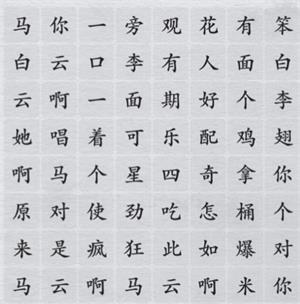 马你一旁观花有笨
白云口李有人面白
云啊一面期好个李
她唱着可乐配鸡翅
啊马个星四奇拿你
原对使劲吃怎桶个
来是疯狂此如爆对
马云啊马云啊米你